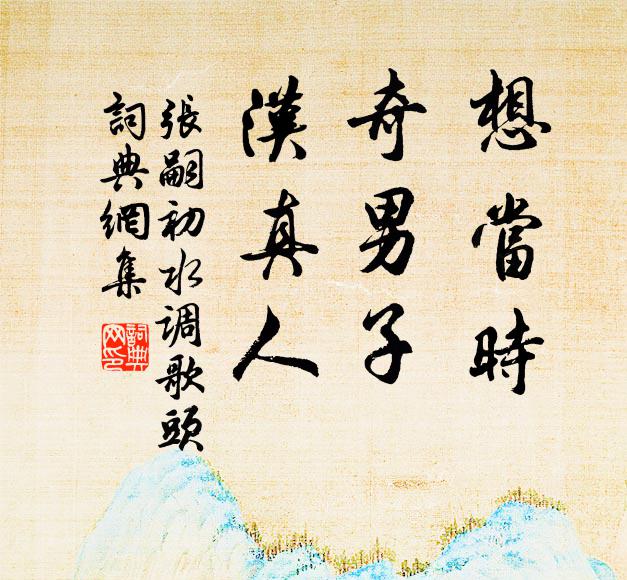 想當時
奇男子
漢真人
張嗣初水調歌頭
詞典網集
詞典网印